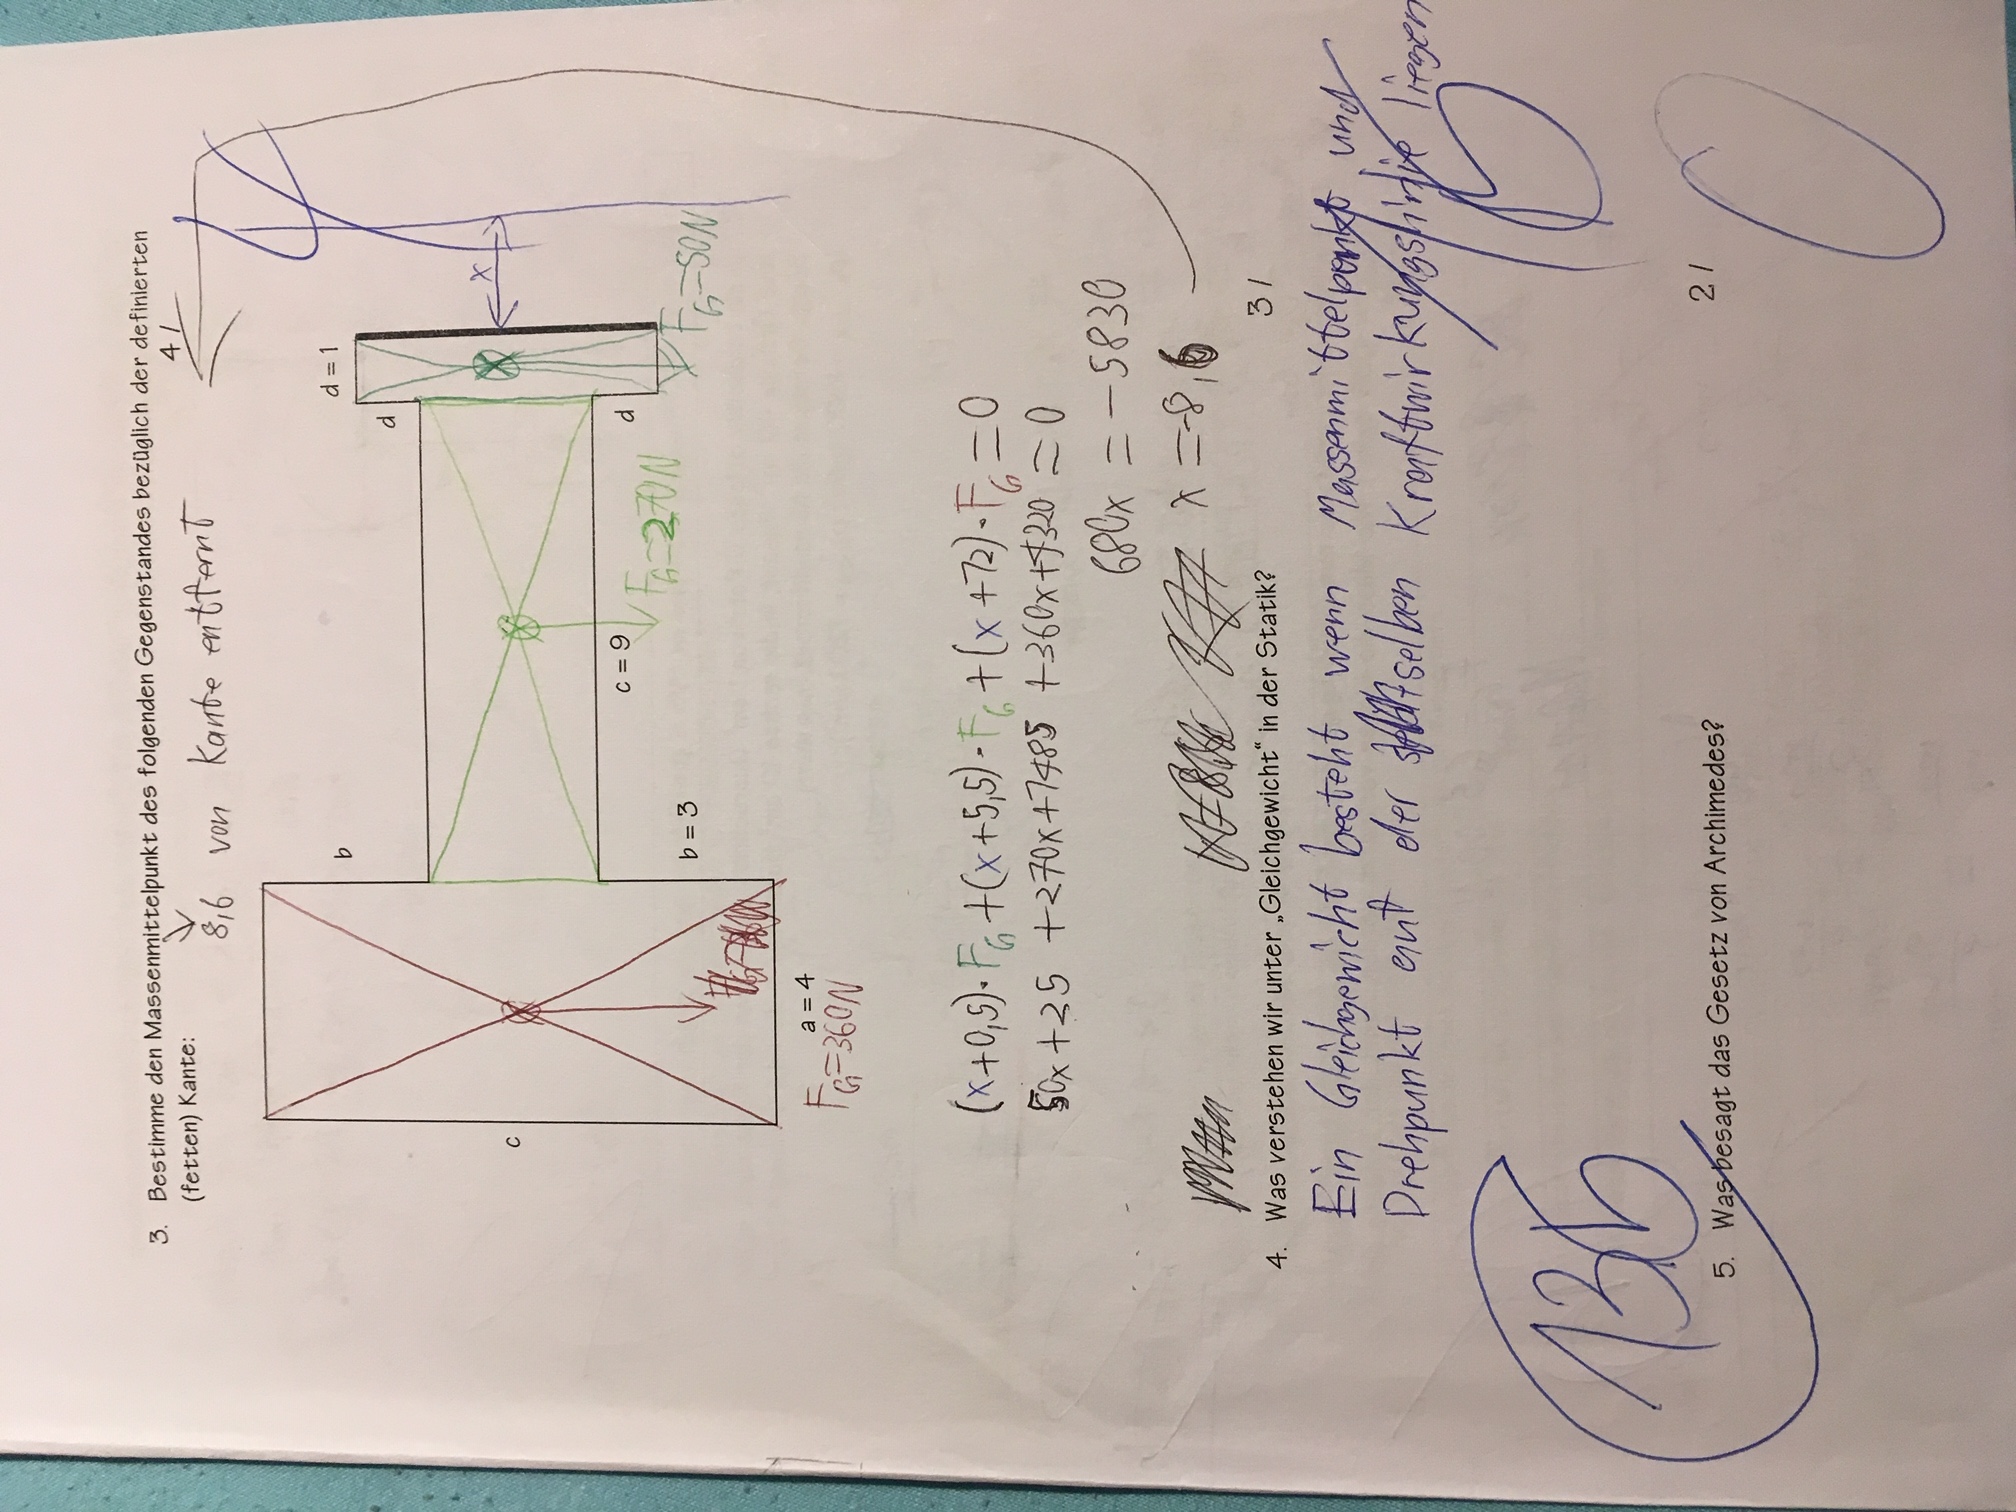 3. Bestimme den Massenmittelpunkt des folgenden Gegenstandes bezüglich der definierten
(fetten) Kante:
4 /
8,6 von Kante entfernt
4
d = 1
b
d
c
x
c = 9
d
F_G=270N
b = 3
F_G=50N
a = 4
F_G=360N
(x+0,5)·F_G +(x+5,5)·F_G +(x+12)·F_G =0
50x+25 +270x+1485 +360x+4320 =0
680x = -5830
x =-8,6
4. Was verstehen wir unter „Gleichgewicht“ in der Statik?
3 /
Ein Gleichgewicht besteht wenn Massenmittelpunkt und
Drehpunkt auf der selben Kraftwirkungslinie liegen
1,5
13,5
5. Was besagt das Gesetz von Archimedes?
2 /
0